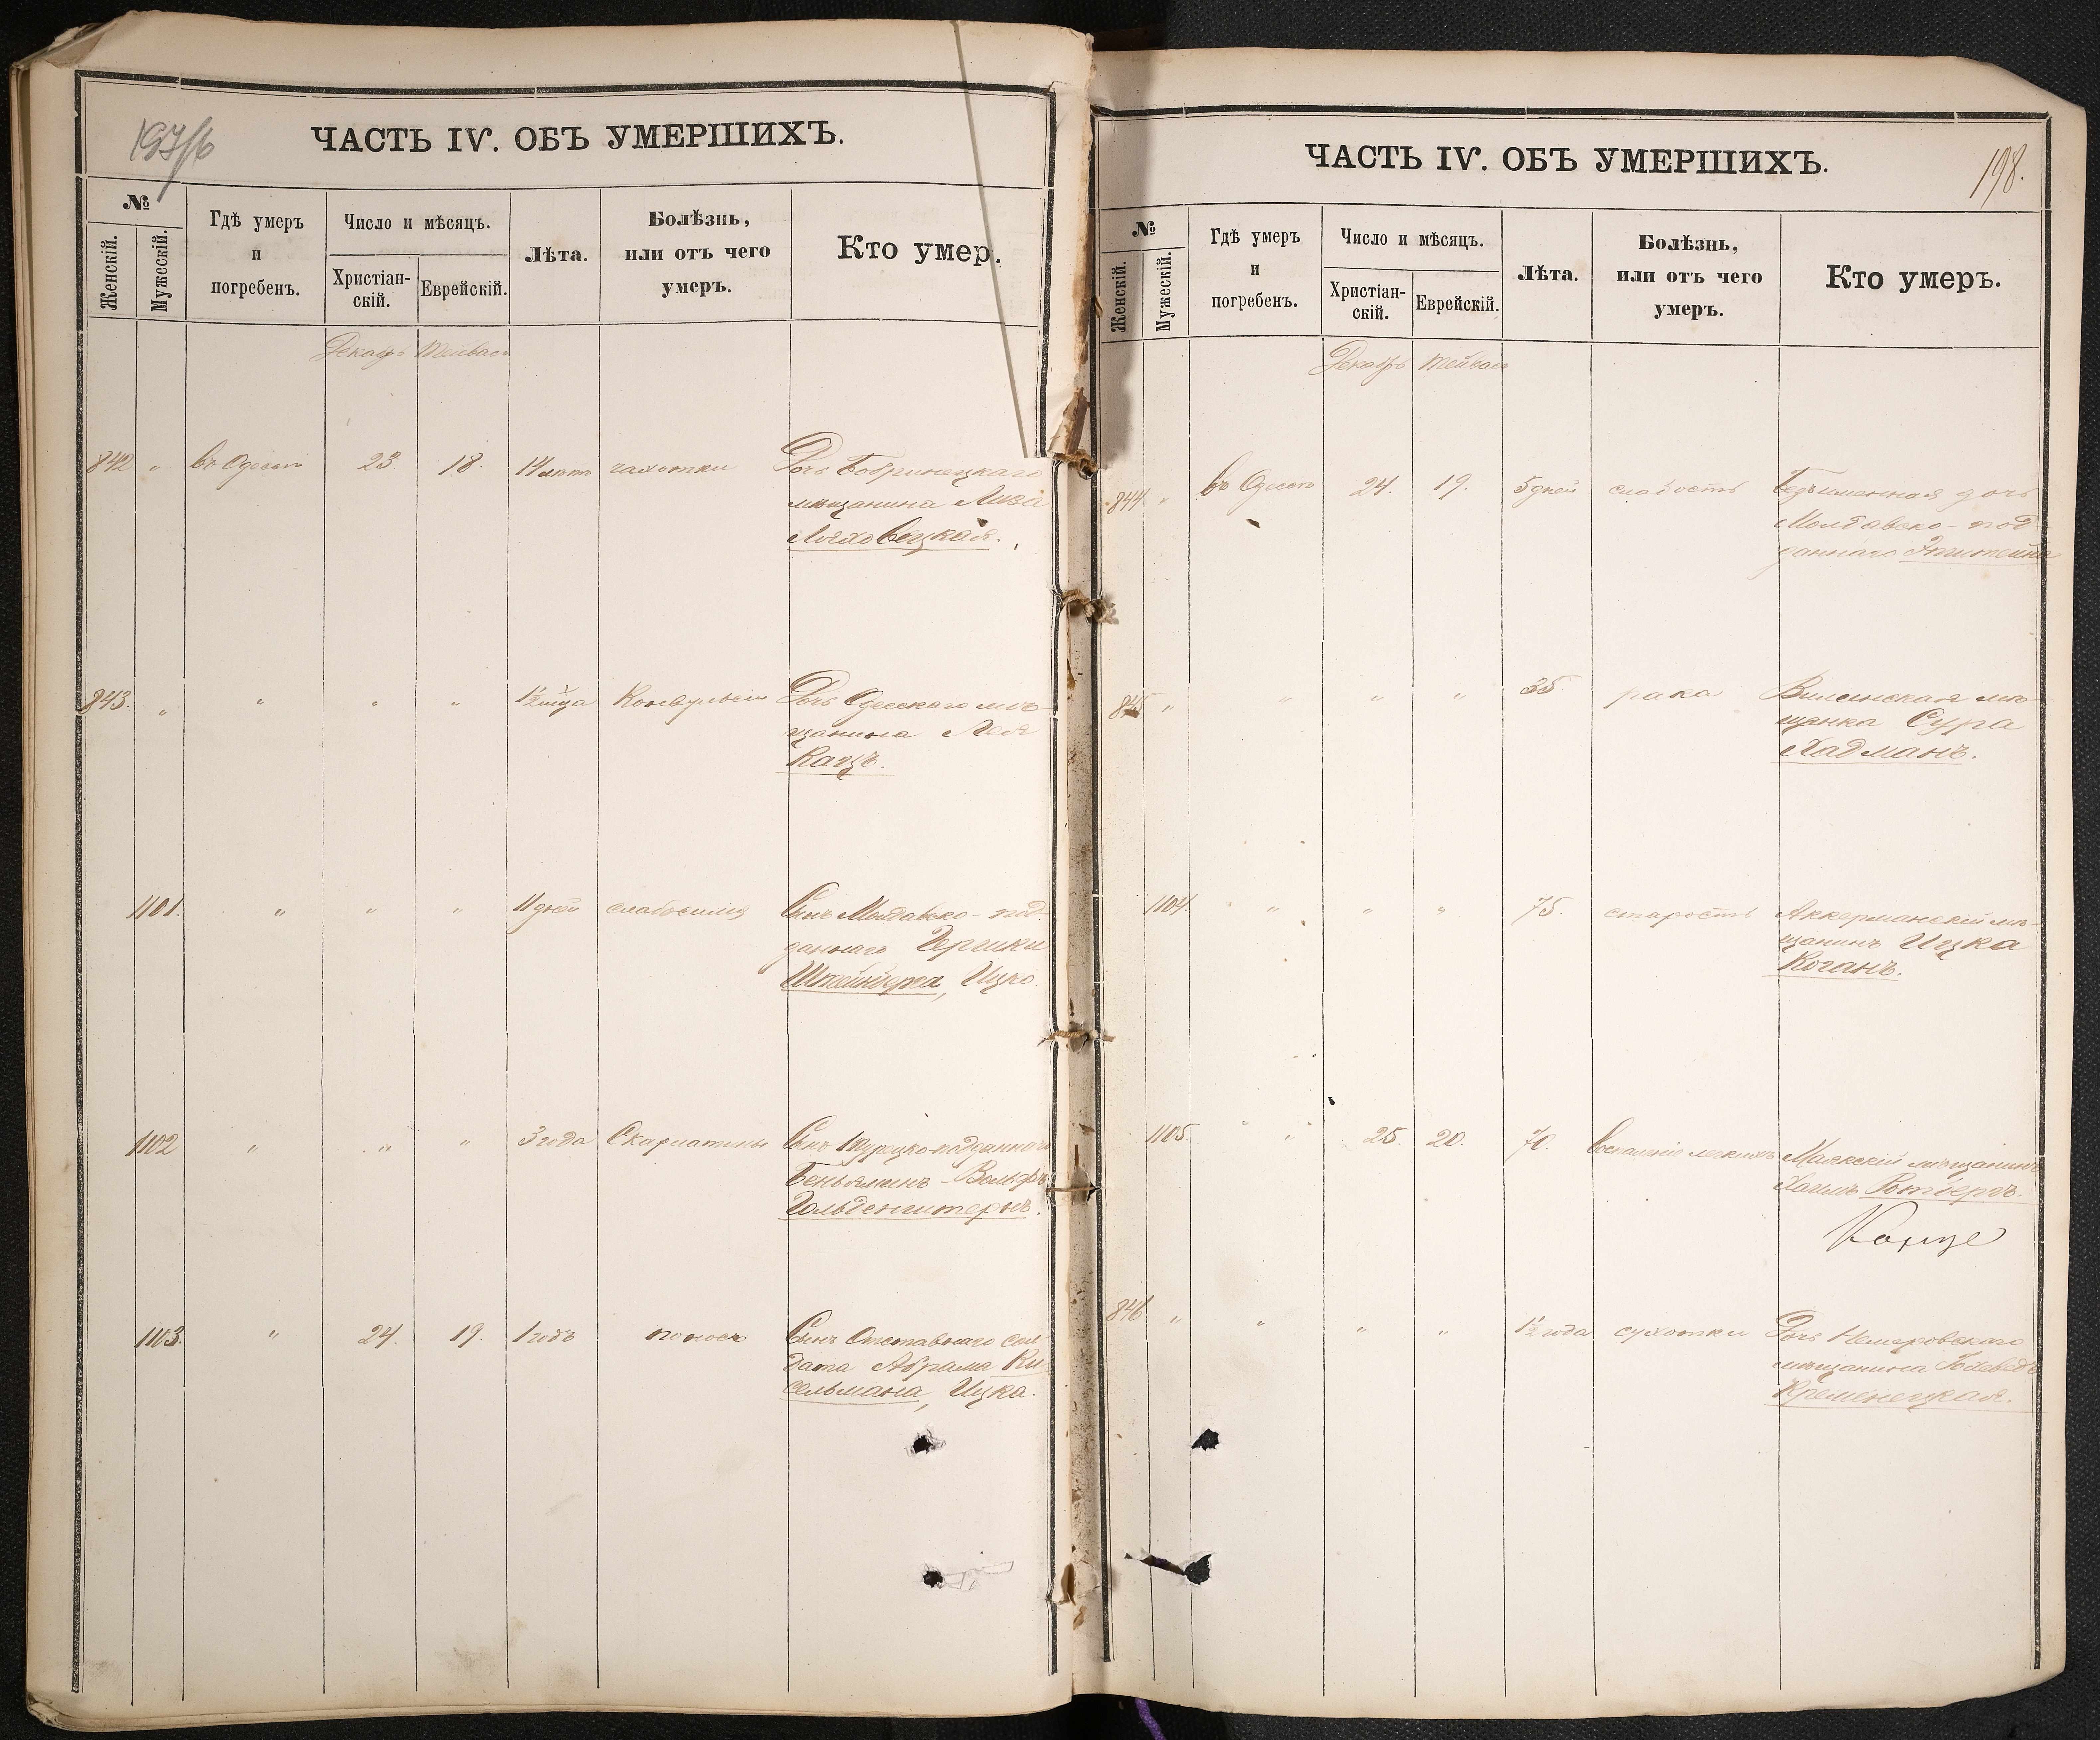 197/6
ЧАСТЬ IV. ОБЪ УМЕРШИХЪ.
№
Женскій.
Мужескій.
Гдѣ умеръ
и
погребенъ.
Число и мѣсяцъ.
Христіан-
скій.
Еврейскій.
Лѣта.
Болѣзнь,
или отъ чего
умеръ.
Кто умер.
Декабрь Тейвасъ
842 " въ Одессѣ 23. 18. 14 лѣтъ чахотки Дочь Бобринецкаго
мѣщанина Лиза
Ляховецкая.
843. " " " " 1½ Конвульсіи Дочь Одесскаго мѣ-
щанина Лея
Кацъ.
1101. " " " 11 дней слабосилія Сынъ Молдавско-под-
даннаго Гершки
Штейнберга, Ицко.
1102 " " " 3 года Скарлатины Сынъ Турецко-подданнаго
Беньяминъ-Вольфъ
Гольденштернъ.
1103. " 24. 19. 1 годъ поносъ Сынъ Отставнаго сол
дата Абрама Ки
сельмана, Ицка.
ЧАСТЬ IV. ОБЪ УМЕРШИХЪ.
198.
№
Женскій.
Мужескій.
Гдѣ умеръ
и
погребенъ.
Число и мѣсяцъ.
Христіан-
скій.
Еврейскій.
Лѣта.
Болѣзнь,
или отъ чего
умеръ.
Кто умеръ.
Декабрь Тейвасъ
844 " въ Одессѣ 24. 19. 5 дней слабость Безъименная дочь
Молдавско-под
даннаго Эпштейна
845 " " " " 35. рака Виленская мѣ-
щанка Сура
Хадманъ.
1104. " " " " 75. старость Аккерманскій мѣ-
щанинъ Ицка
Коганъ.
1105. " " 25. 20. 70. воспаленіе легкихъ Маякскій мѣщанинъ
Хаимъ Ротбергъ.
846. " " " " 1½ года сухотки Дочь Немировскаго
мѣщанина
Кременецкая.